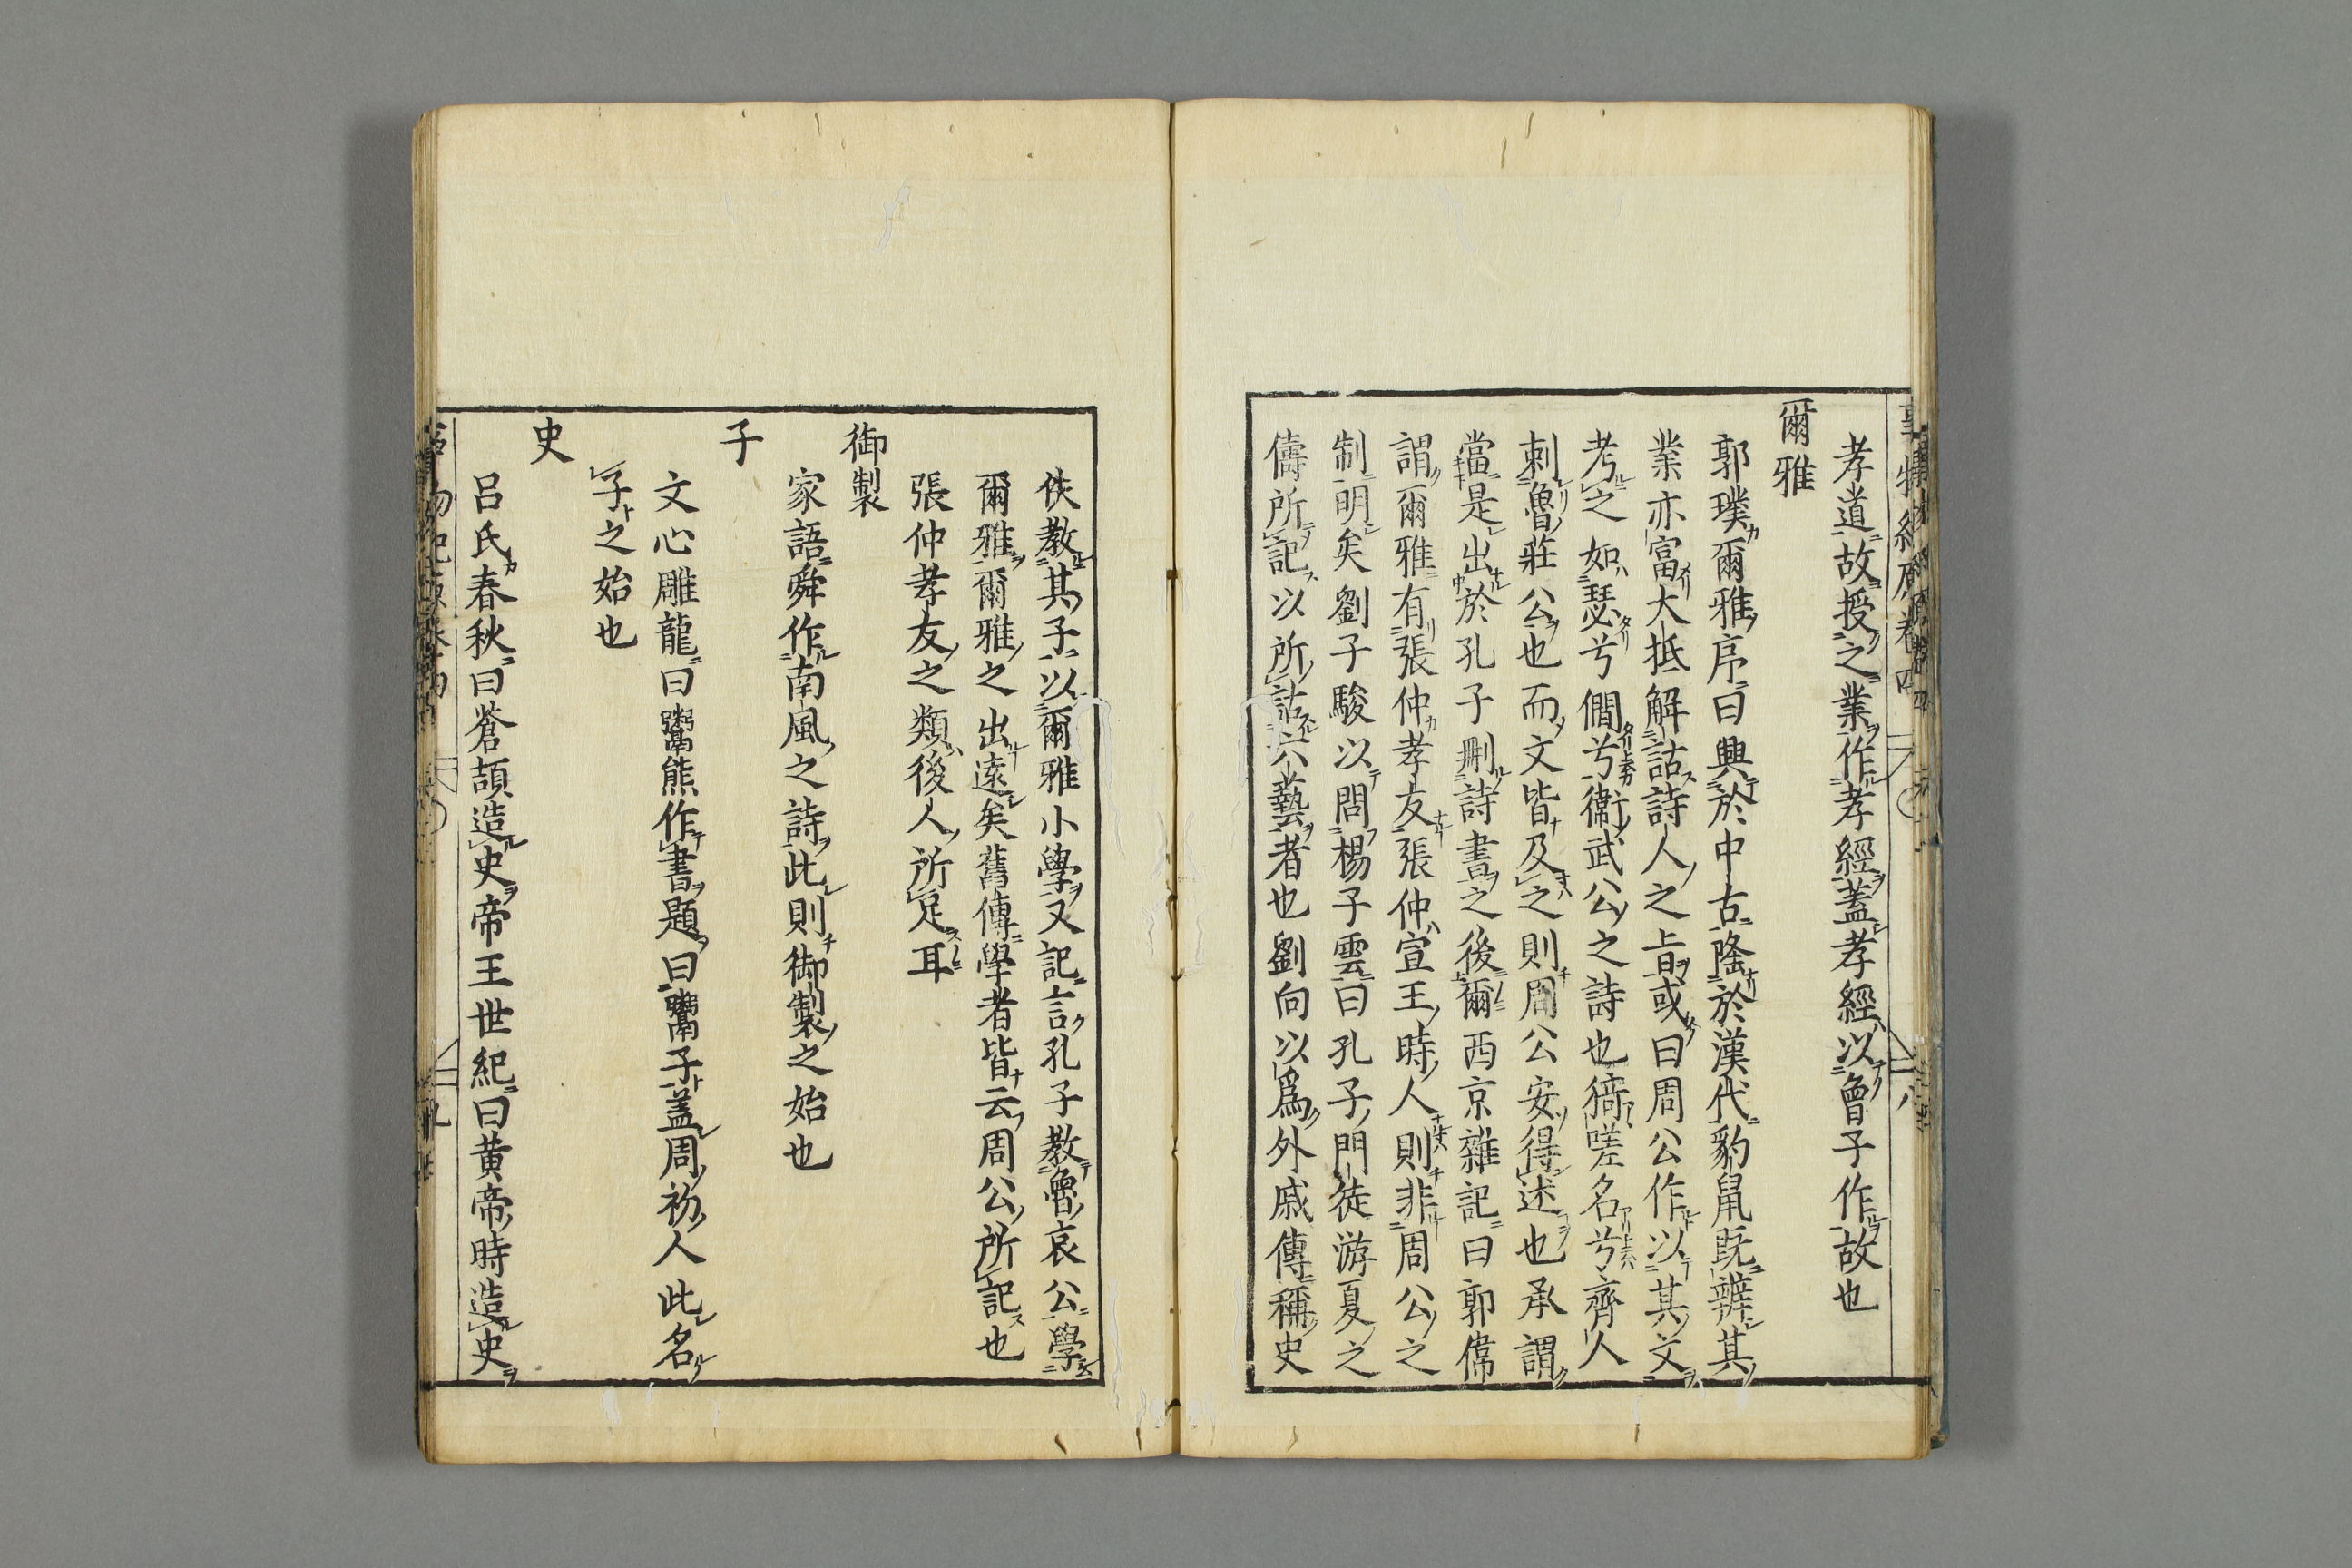 孝道故授之業作孝經蓋孝經以曾子作故也
爾雅
郭璞爾雅序曰興於中古隆於漢代豹鼠既辨其
業亦富大抵解詁詩人之旨或曰周公作以其文
考之如瑟兮僩兮衛武公之詩也猗嗟名兮齊人
刺魯莊公也而文皆及之則周公安得述也承謂
當是出於孔子刪詩書之後爾西京雜記曰郭偉
謂爾雅有張仲孝友張仲宣王時人則非周公之
制明矣劉子駿以問楊子雲曰孔子門徒游夏之
儔所記以所詁六藝者也劉向以爲外戚傳稱史
佚教其子以爾雅小學又記言孔子教魯哀公學
爾雅爾雅之出遠矣舊傳學者皆云周公所記也
張仲孝友之類後人所足耳
御製
家語舜作南風之詩此則御製之始也
子
文心雕龍曰鬻熊作書題曰鬻子蓋周初人此名
子之始也
史
呂氏春秋曰蒼頡造史帝王世紀曰黄帝時造史